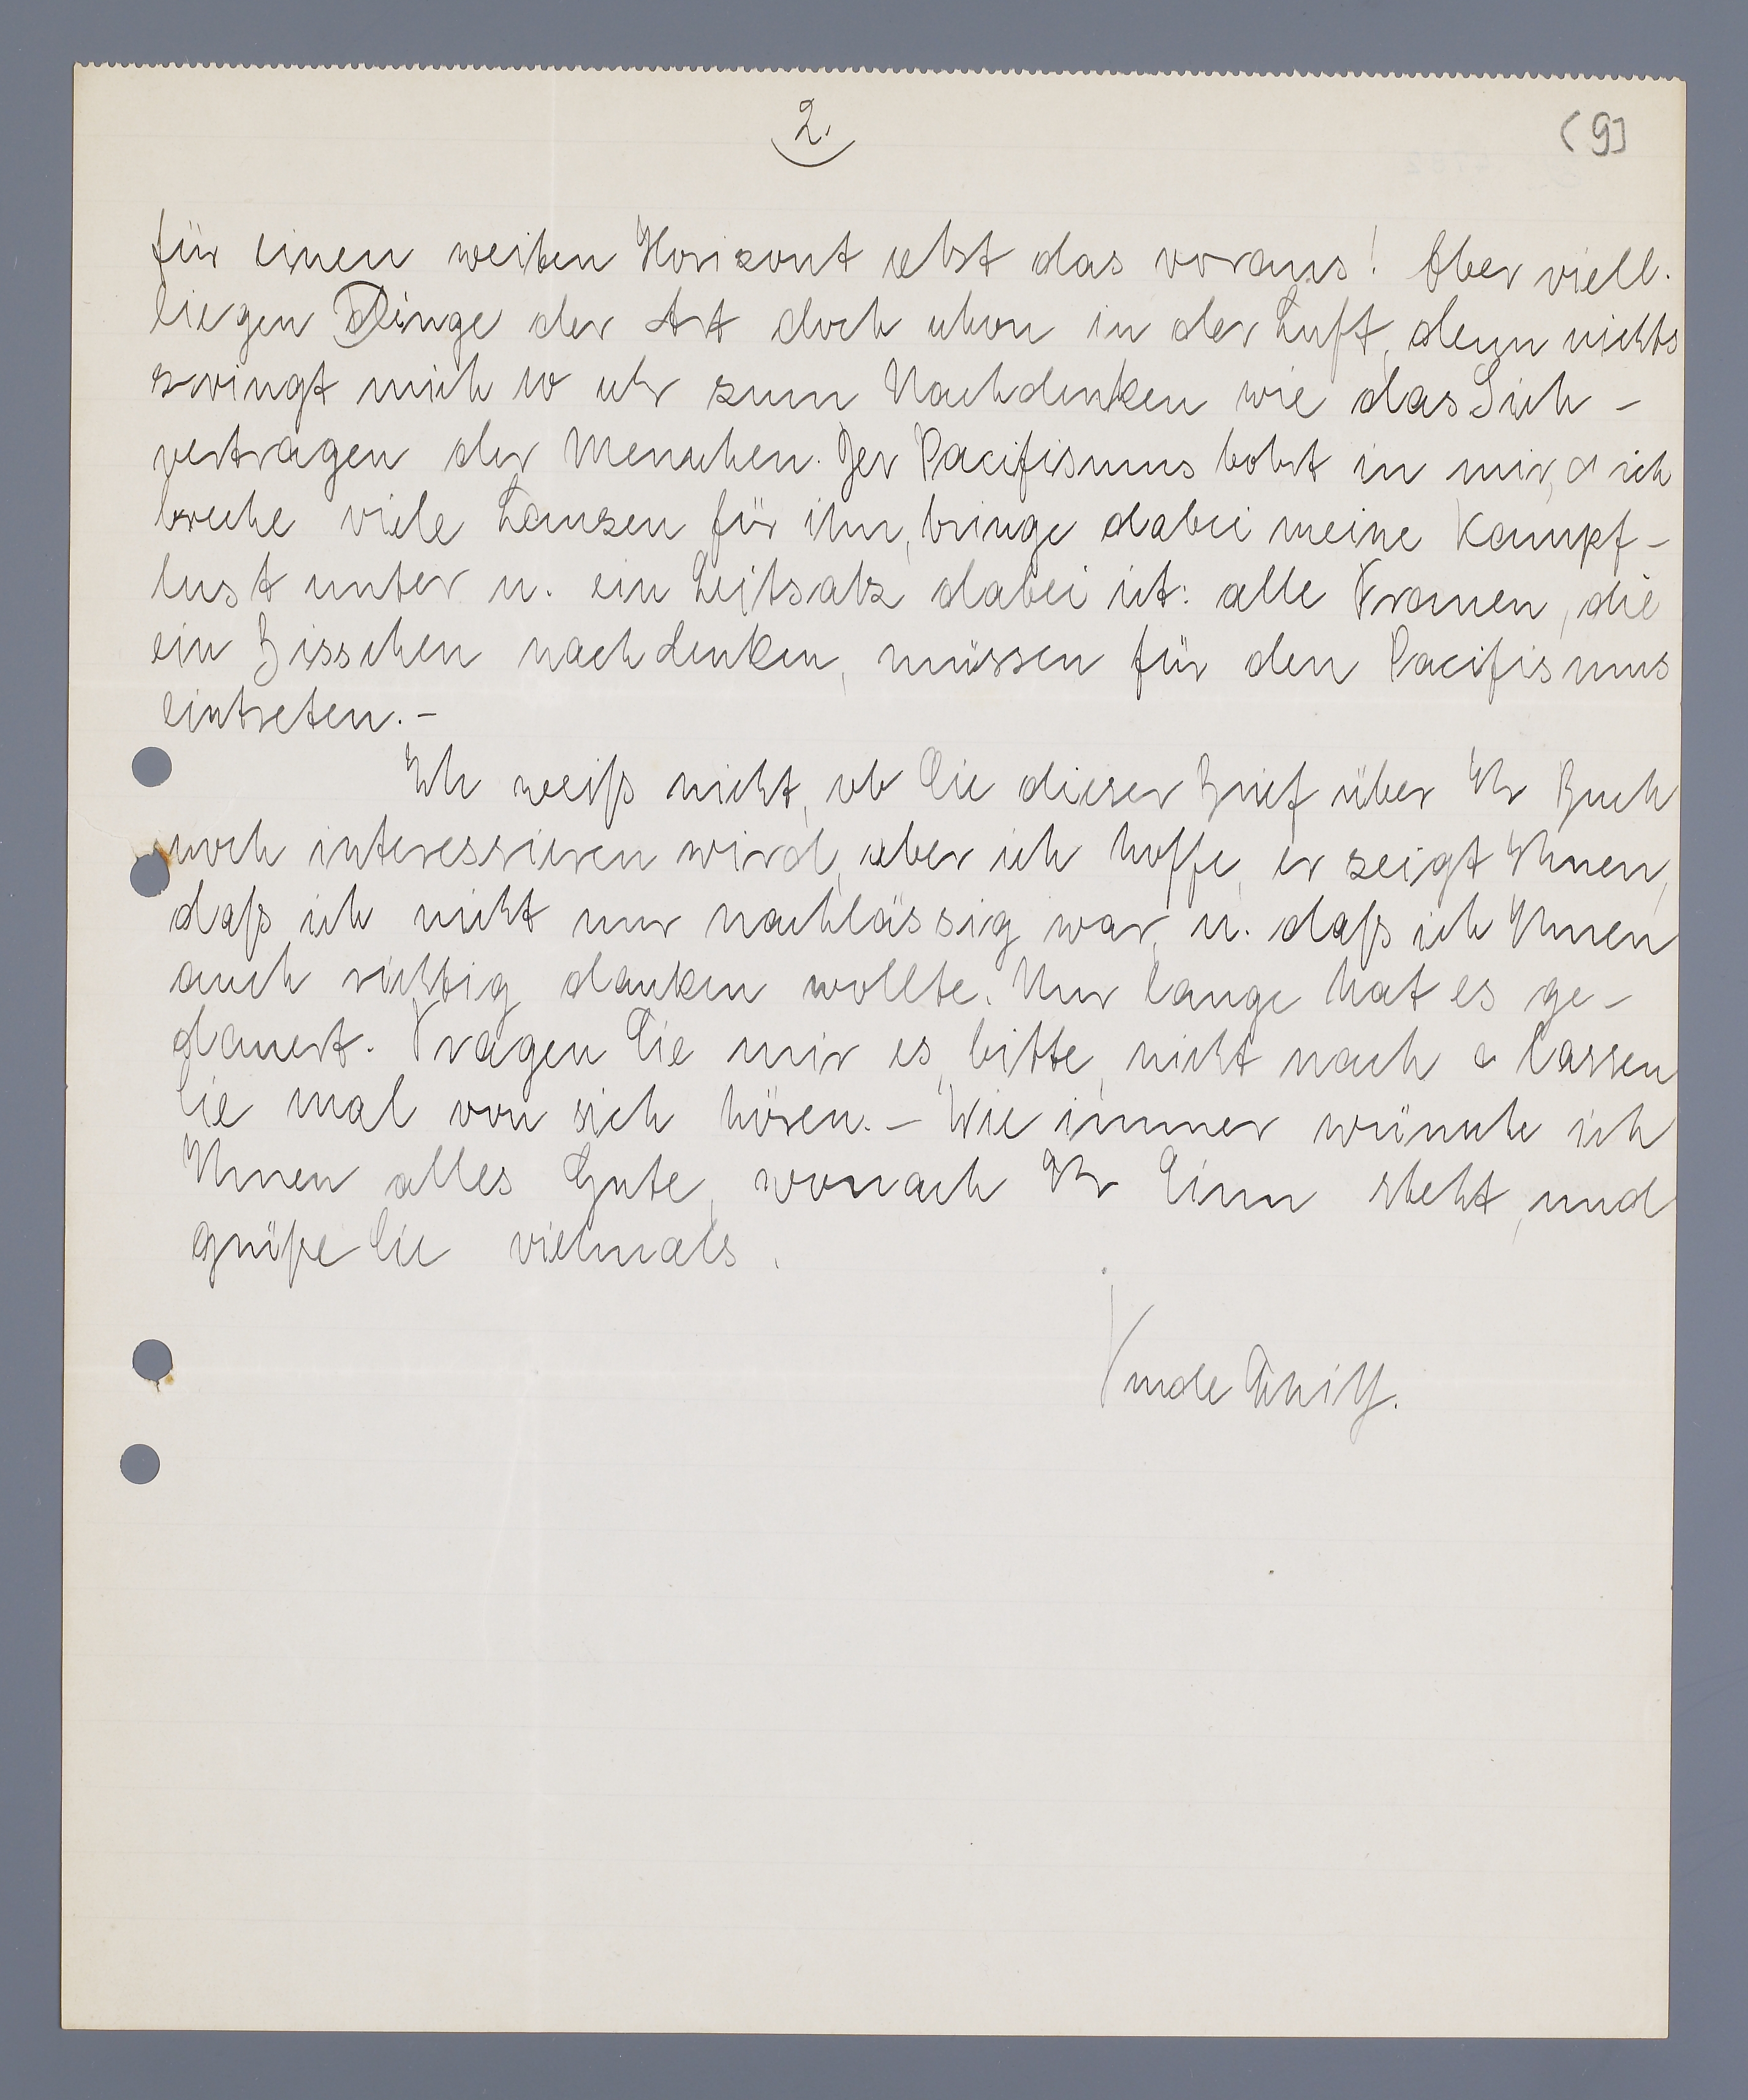 2.
(9)
für einen weiten Horizont setzt das voraus! Aber viell.
liegen Dinge der Art doch schon in der Luft, denn nichts
zwingt mich so sehr zum Nachdenken wie das Sich-
vertragen der Menschen. Der Pacifismus bohrt in mir, & ich
breche viele Lanzen für ihn, bringe dabei meine Kampf-
lust unter u. ein Leitsatz dabei ist: alle Frauen, die
ein Bisschen nachdenken, müssen für den Pacifismus
eintreten. -
Ich weiß nicht, ob Sie dieser Brief über Ihr Buch
noch interessieren wird, aber ich hoffe, er zeigt Ihnen,
daß ich nicht nur nachlässig war, u. daß ich Ihnen
auch richtig danken wollte. Nur lange hat es ge-
dauert. Tragen Sie mir es, bitte, nicht nach & lassen
Sie mal von sich hören. - Wie immer wünsche ich
Ihnen alles Gute, wonach Ihr Sinn steht, und
grüße Sie vielmals.